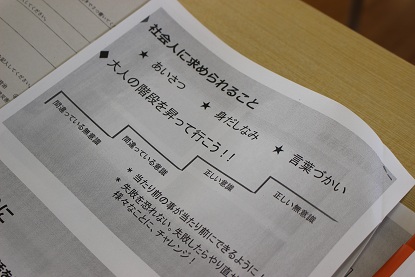 社会人に求められること
★ あいさつ
★ 身だしなみ
★ 言葉づかい
◆ 大人の階段を昇って行こう!!
間違っている無意識
間違っている意識
正しい意識
正しい無意識
* 当たり前の事が当たり前にできるように
* 失敗を恐れない。失敗したらやり直
様々なことに、チャレンジ!